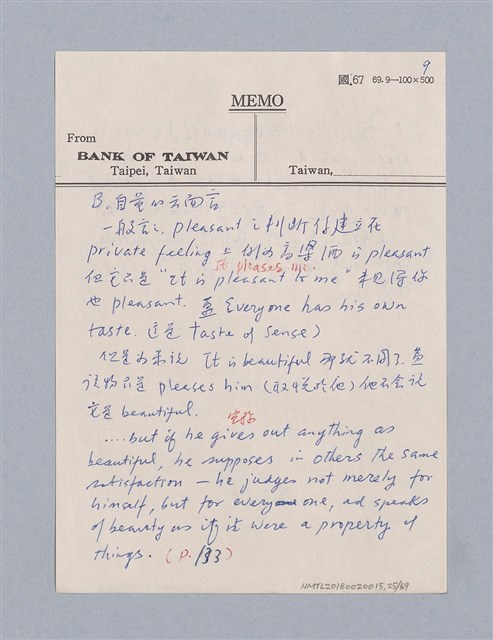 9
國.67 69.9—100×500
MEMO
From
BANK OF TAIWAN
Taipei, Taiwan
Taiwan,
B. 自量的方面言
一般言之, pleasant 之判斷係建立在
private feeling 上 例如 高粱酒 is pleasant
It pleases me.
但它只是 "It is pleasant to me" 未見得你
也 pleasant. 蓋 Everyone has his own
taste. 這是 taste of sense)
但是如果說 It is beautiful 那就不同了. 蓋
該物只是 pleases him (取悅於他) 他不會說
它是 beautiful.
宣稱
....but if he gives out anything as
beautiful, he supposes in others the same
satisfaction — he judges not merely for
himself, but for every one, ad speaks
of beauty as if it were a property of
things. (P. 133)
NMTL20180020015,25/69